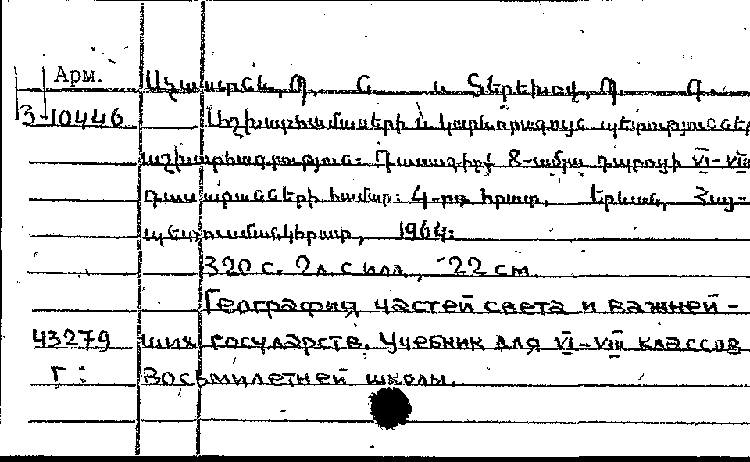 Арм.
և Տերեխով, Պ. Գ.
3-10446 Աշխարհամասերի և կարևորագույն պետություններ
աշխարհագրություն: Դասագիրք 8-ամյա դպրոցի VI-VIII
դասարանների համար: 4-րդ հրատ. Երևան, Հայ-
պետուսմանկհրատ, 1964:
320 с. 2 л. с илл., 22 см.
География частей света и важней-
43279 ших государств. Учебник для VI-VIII классов
Г: восьмилетней школы.